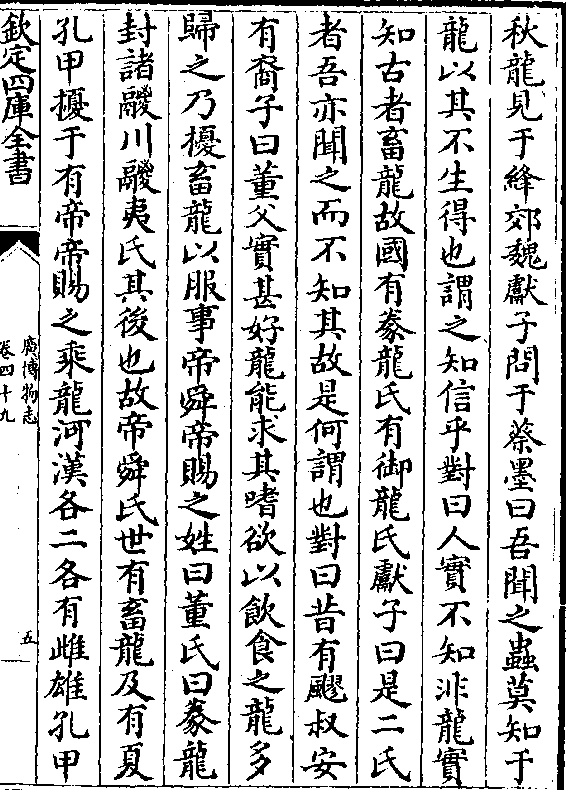 秋龍見于絳郊魏獻子問于蔡墨曰吾聞之蟲莫知于
龍以其不生得也謂之知信乎對曰人實不知非龍實
知古者畜龍故國有豢龍氏有御龍氏獻子曰是二氏
者吾亦聞之而不知其故是何謂也對曰昔有飂叔安
有裔子曰董父實甚好龍能求其嗜欲以飲食之龍多
歸之乃擾畜龍以服事帝舜帝賜之姓曰董氏曰豢龍
封諸鬷川鬷夷氏其後也故帝舜氏世有畜龍及有夏
孔甲擾于有帝帝賜之乘龍河漢各二各有雌雄孔甲
欽定四庫全書
廣博物志
卷四十九
五